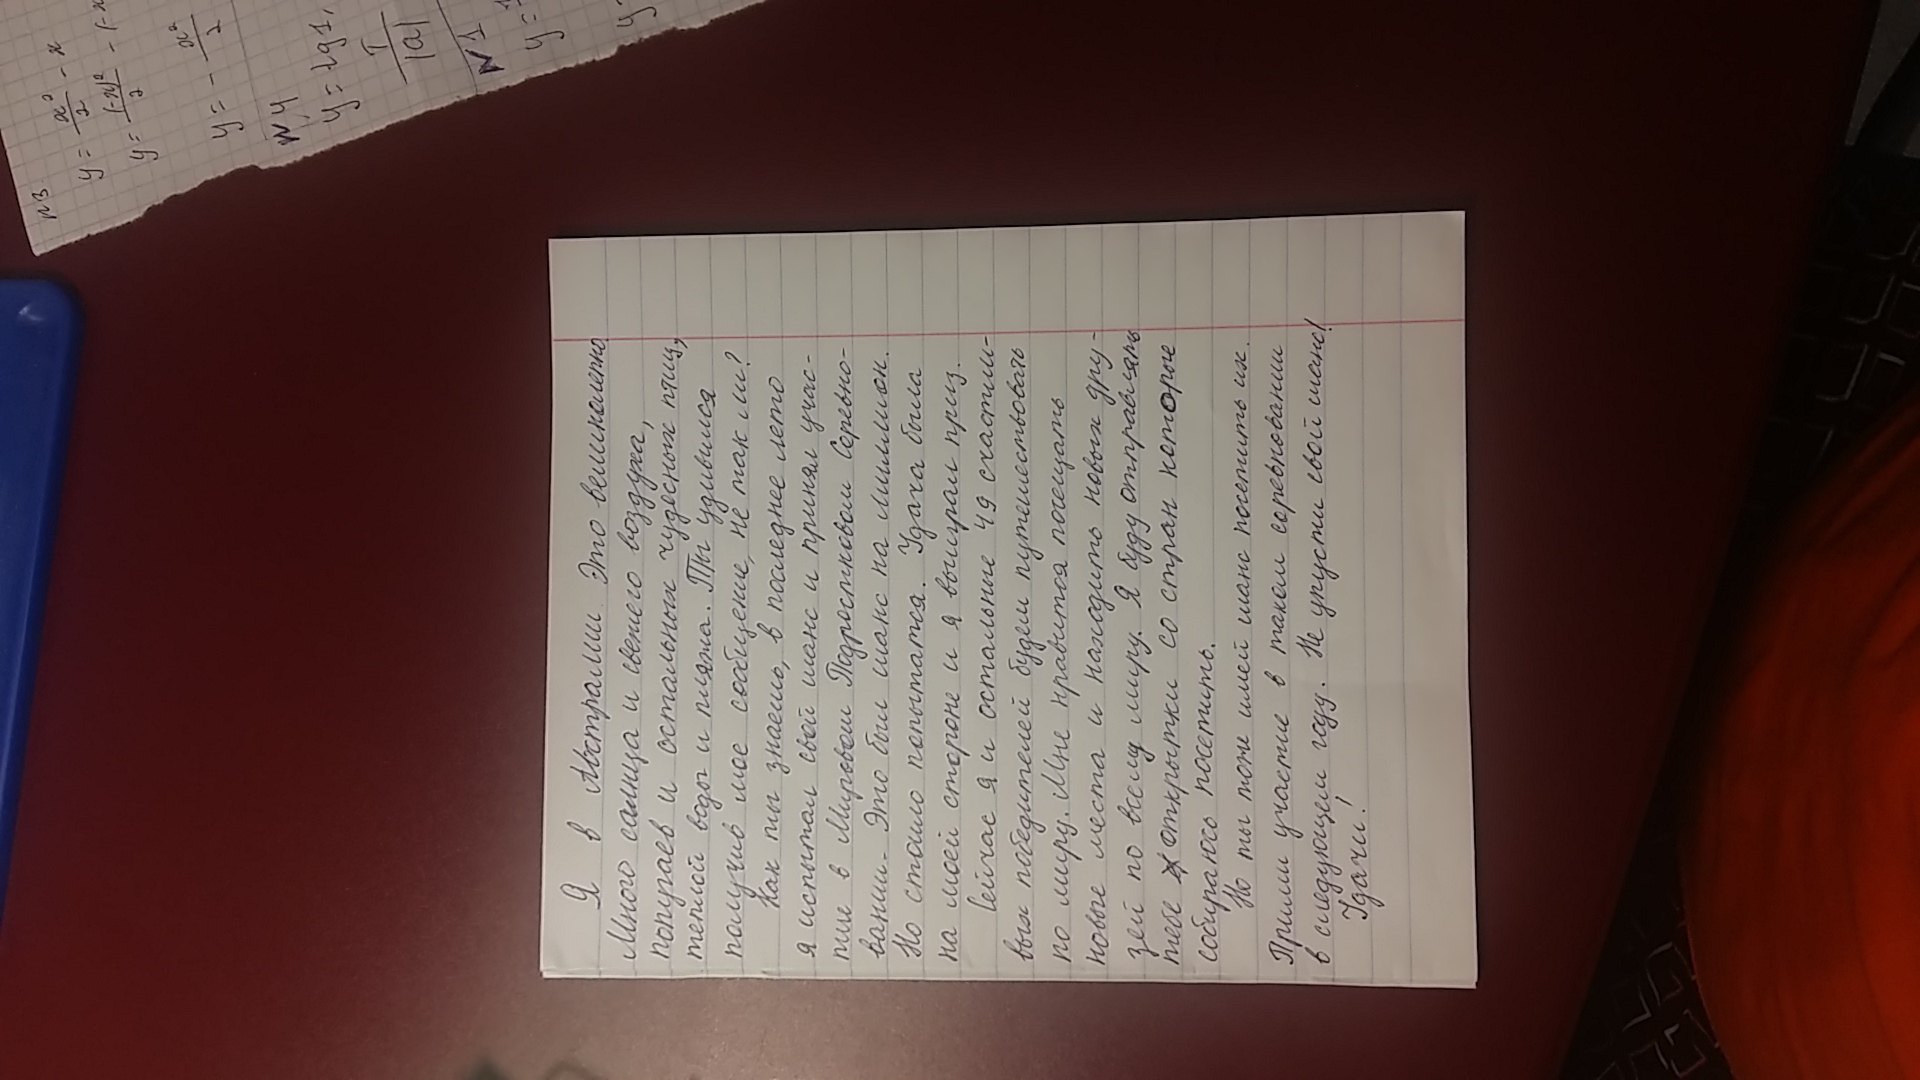 Я в Австралии. Это великолепно
Много солнца и свежего воздуха,
попугаев и остальных чудесных птиц,
теплой воды и пляжа. Ты удивился
получив мое сообщение, не так ли?
Как ты знаешь, в последнее лето
я испытал свой шанс и принял учас-
тие в Мировом Подростковом Соревно-
вании. Это был шанс на миллион.
Но стоило попытатся. Удача была
на моей стороне и я выиграл приз.
Сейчас я и остальные 49 счастли-
вых победителей будем путешествовать
по миру. Мне нравится посещать
новые места и находить новых дру-
зей по всему миру. Я буду отправлять
тебе открытки со стран которые
собираюсь посетить.
Но ты тоже имей шанс посетить их.
Прими участие в таком соревновании
в следующем году. Не упусти свой шанс!
Удачи!
N3
y = x²/2 - x
y = (-x)²/2 - (-x
y = - x²/2
N4
y = tg1,
1/|a|
N1
y =
y